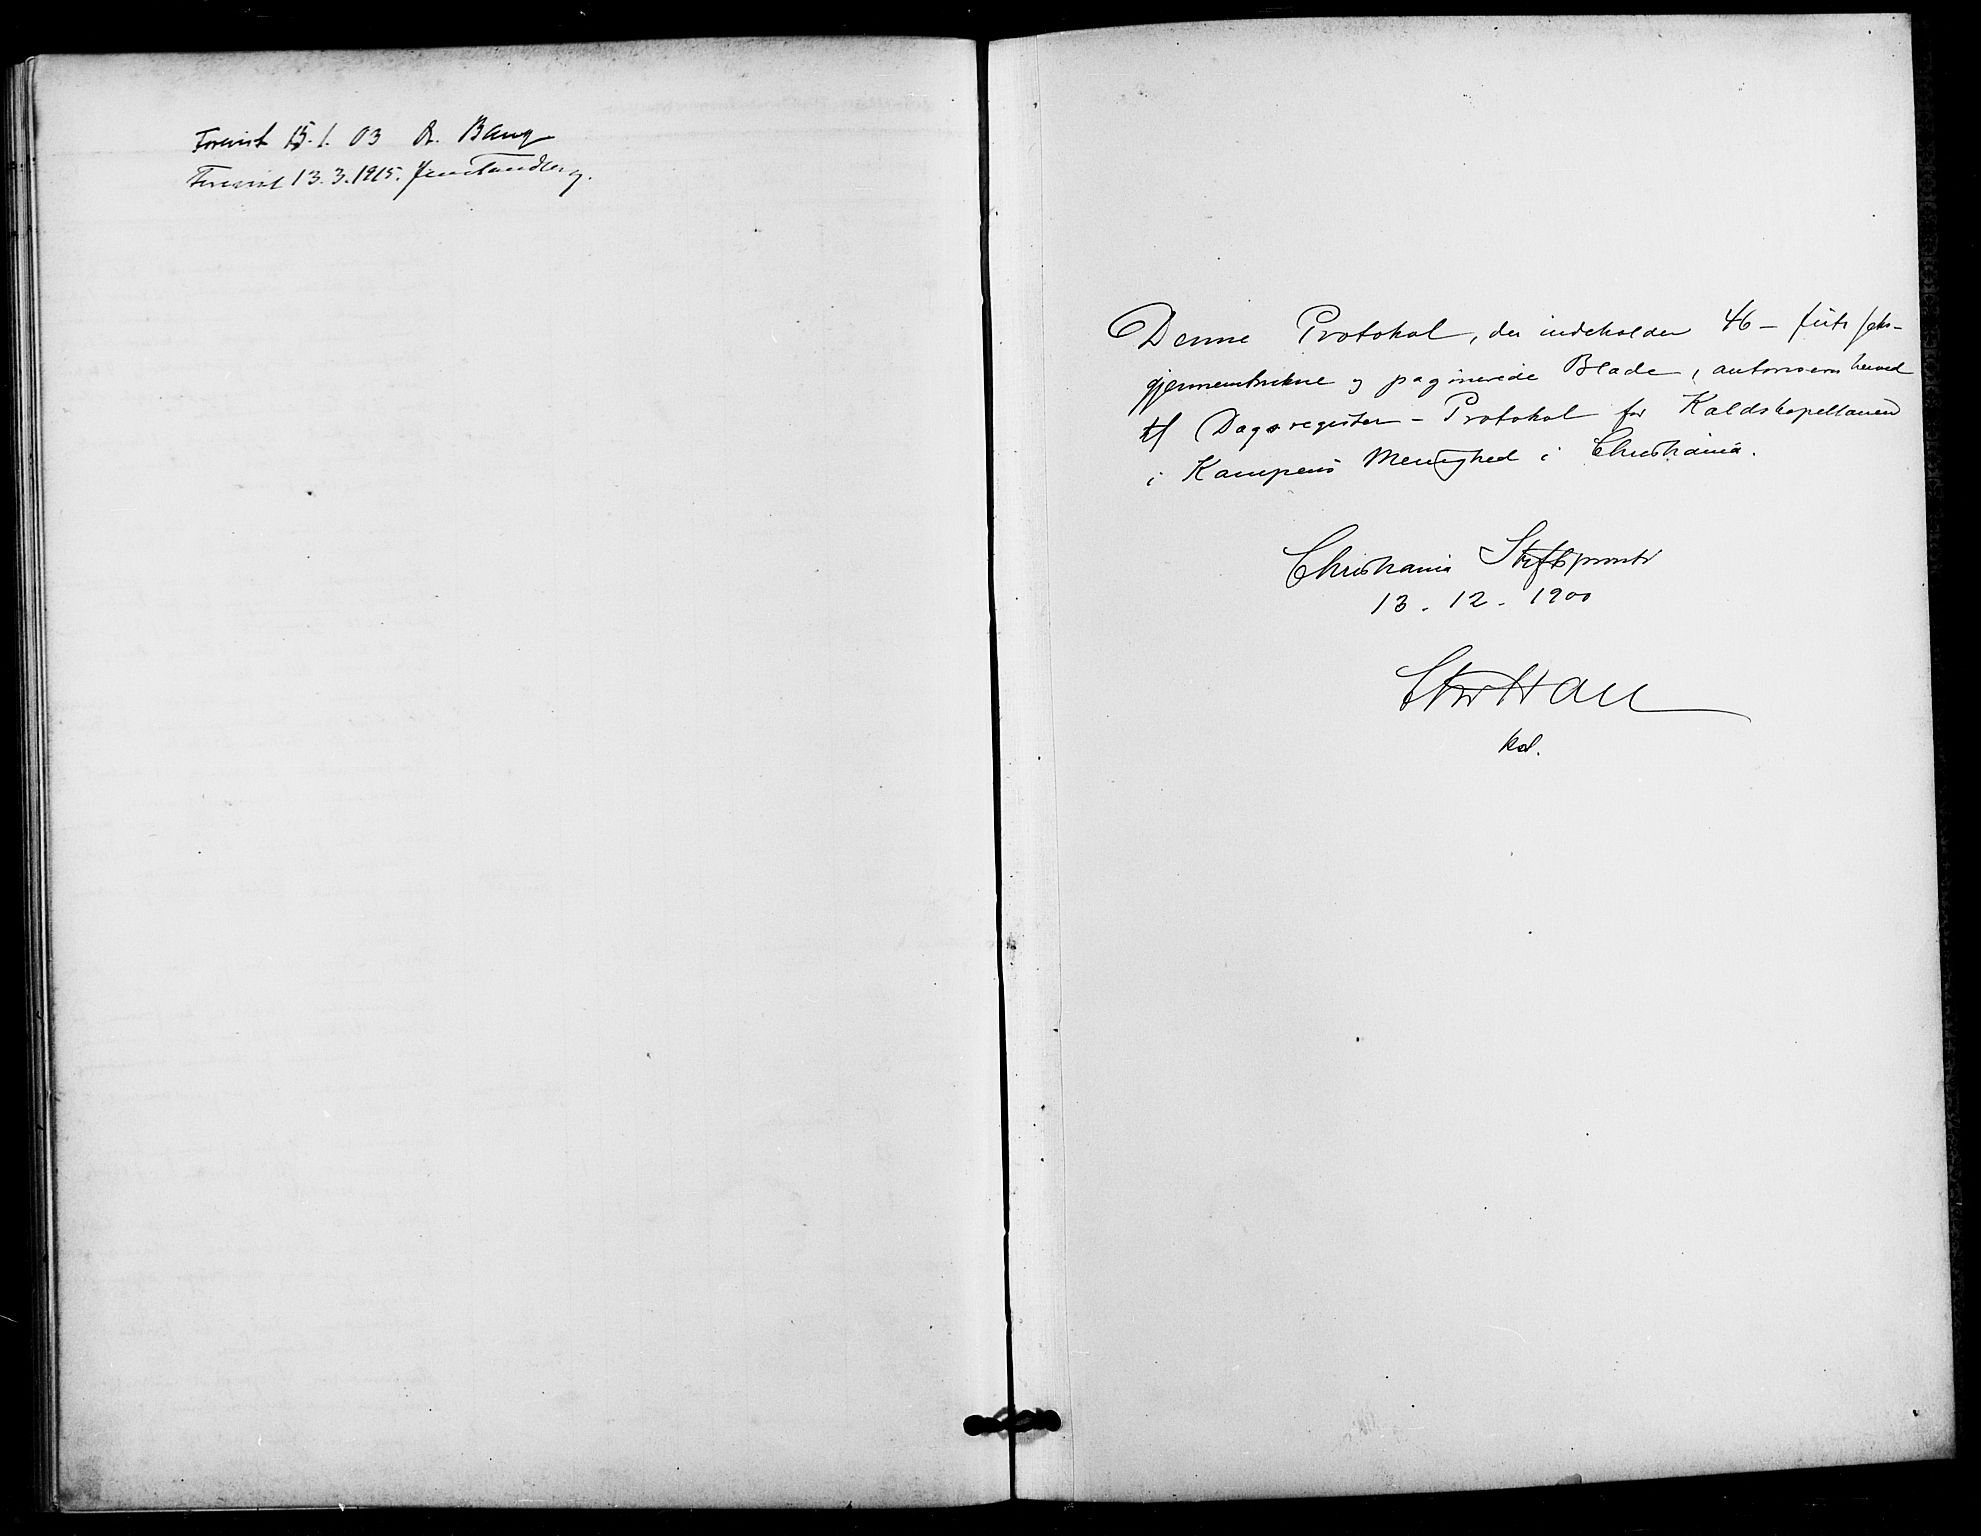 Forevist 15.1.03 A. Bang
Forevist 13.3.1915. Jens Tandberg.
Denne Protokol, der indeholder 46 – firti seks –
gjennemtrukne og paginerede Blade, autoriseres herved
til Dagsregister-Protokol for Kaldskapellanen
i Kampens Menighed i Christiania.
Christiania Stiftsprovsti
13 - 12 - 1900
Hall